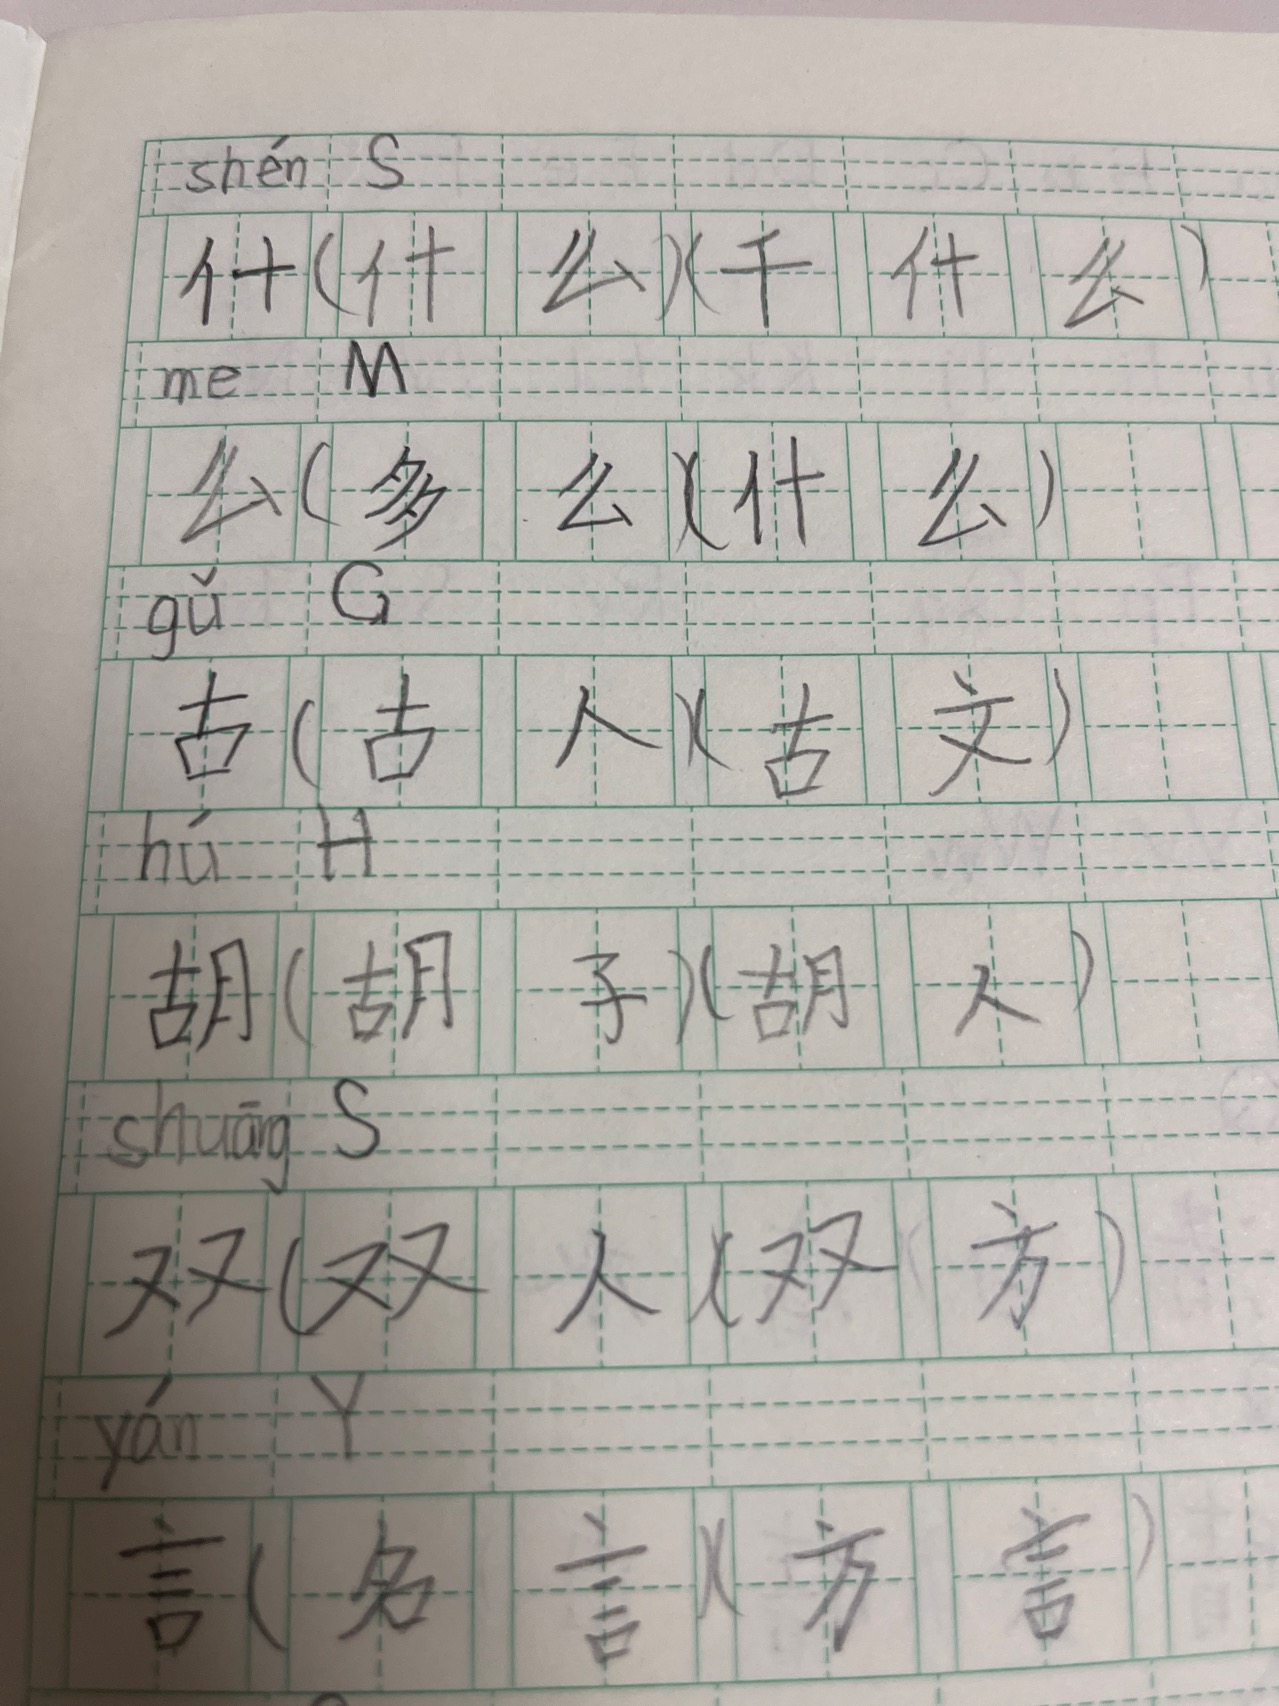 shén S
什(什么)(干什么)
me M
么(多么)(什么)
gǔ G
古(古人)(古文)
hú H
胡(胡子)(胡人)
shuāng S
双(双人)(双方)
yán Y
言(名言)(方言)